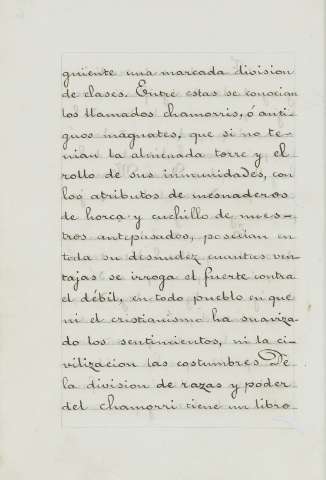 guiente una marcada division
de clases. Entre estas se conocian
los llamados chamorris, ó anti-
guos magnates, que si no te-
nian la almenada torre y el
rollo de sus inmunidades, con
los atributos de mesnaderos
de horca y cuchillo de nues-
tros antepasados, poseian en
toda su desnudez cuantas ven-
tajas se irroga el fuerte contra
el débil, en todo pueblo en que
ni el cristianismo ha suaviza-
do los sentimientos, ni la ci-
vilizacion las costumbres. De
la division de razas y poder
del chamorri tiene un libro